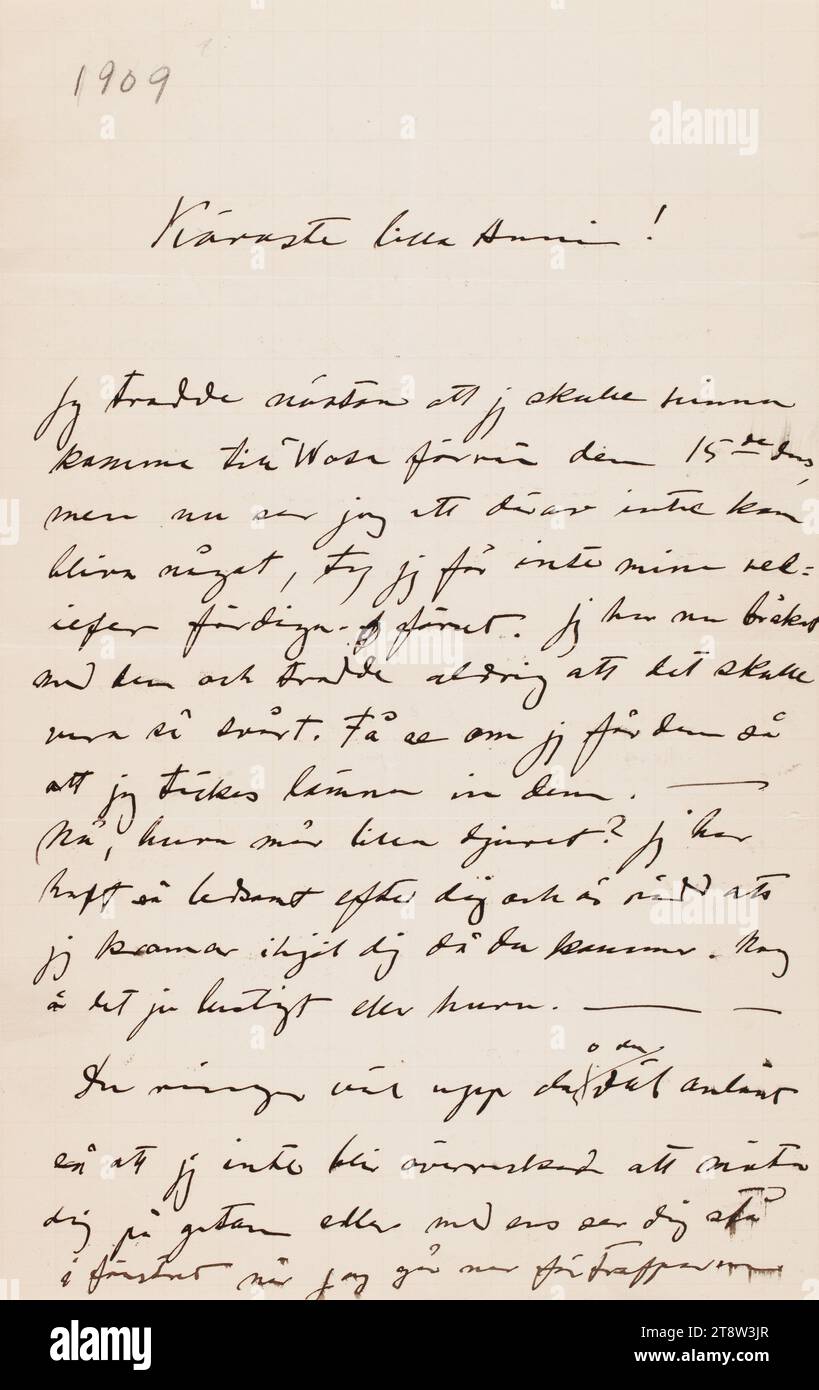 1909
Käraste lilla Anni!
Jg trodde nästan att jg skulle hinna
komma till Wasa förrän den 15de dns,
men nu ser jag att därav inte kan
bliva något, ty jg får inte mina rel=
iefer färdiga förut. Jg har nu bråkat
med dem och trodde aldrig att det skulle
vara så svårt. Få se om jg får dem så
att jg täckes lämna in dem. —
Nå, huru mår lilla djuret? Jg har
haft så ledsamt efter dig och är rädd att
jg kramar ihjäl dig då du kommer. Nog
är det ju lustigt eller huru. — —
Du ringer väl upp då du dit anländt
så att jg inte blir överraskad att möta
dig på gatan eller med ens ser dig stå
i fönstret när jag går ner för trapporna
alamy
Image ID: 2T8W3JR
www.alamy.com